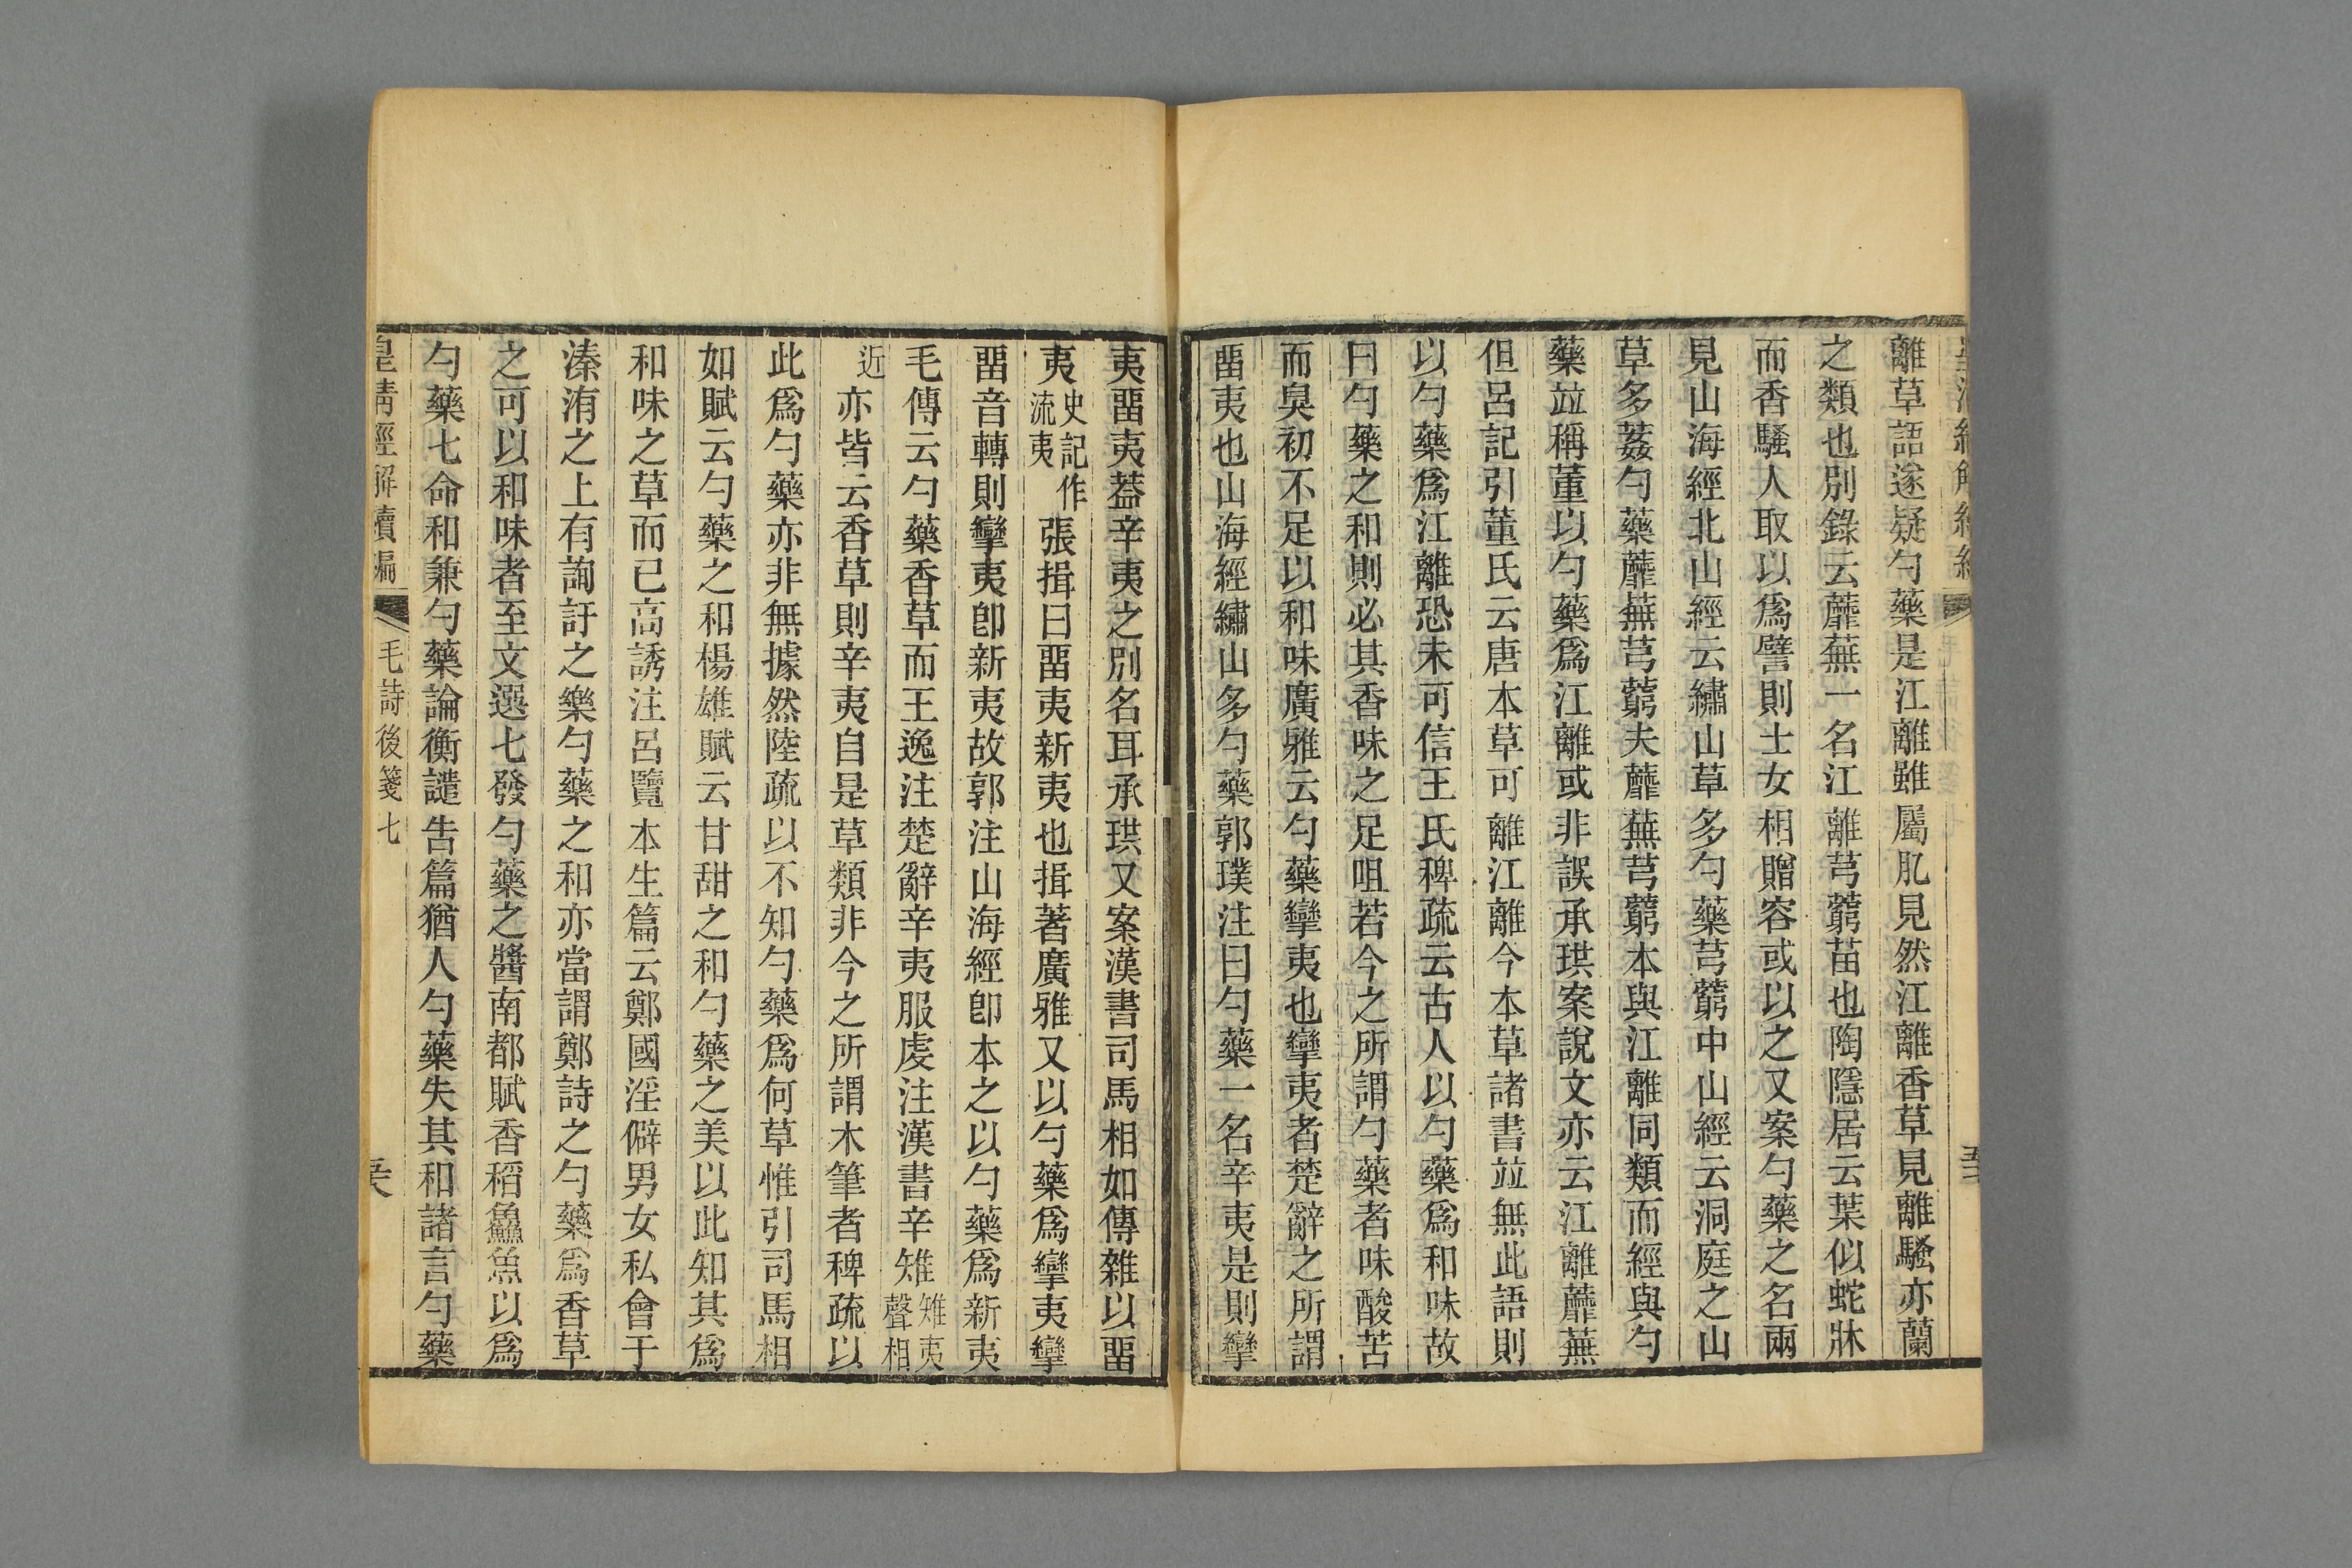 離草語遂疑勺藥是江離雖屬肊見然江離香草見離騷亦蘭
之類也別錄云蘼蕪一名江離芎藭苗也陶隱居云葉似蛇牀
而香騷人取以爲譬則士女相贈容或以之又案勺藥之名兩
見山海經北山經云繡山草多勺藥芎藭中山經云洞庭之山
草多葌勺藥蘼蕪芎藭夫蘼蕪芎藭本與江離同類而經與勺
藥竝稱董以勺藥爲江離或非誤承珙案說文亦云江離蘼蕪
但呂記引董氏云唐本草可離江離今本草諸書竝無此語則
以勺藥爲江離恐未可信王氏稗疏云古人以勺藥爲和味故
曰勺藥之和則必其香味之足咀若今之所謂勺藥者味酸苦
而臭初不足以和味廣雅云勺藥攣夷也攣夷者楚辭之所謂
畱夷也山海經繡山多勺藥郭璞注曰勺藥一名辛夷是則攣
夷畱夷葢辛夷之別名耳承珙又案漢書司馬相如傳雜以畱
夷史記作流夷張揖曰畱夷新夷也揖著廣雅又以勺藥爲攣夷攣
畱音轉則攣夷卽新夷故郭注山海經卽本之以勺藥爲新夷
毛傳云勺藥香草而王逸注楚辭辛夷服虔注漢書辛雉雉夷聲相
近亦皆云香草則辛夷自是草類非今之所謂木筆者稗疏以
此爲勺藥亦非無據然陸疏以不知勺藥爲何草惟引司馬相
如賦云勺藥之和楊雄賦云甘甜之和勺藥之美以此知其爲
和味之草而已高誘注呂覽本生篇云鄭國淫僻男女私會于
溱洧之上有詢訏之樂勺藥之和亦當謂鄭詩之勺藥爲香草
之可以和味者至文選七發勺藥之醬南都賦香稻鱻魚以爲
勺藥七命和兼勺藥論衡譴告篇猶人勺藥失其和諸言勺藥
皇清經解續編
毛詩後箋七